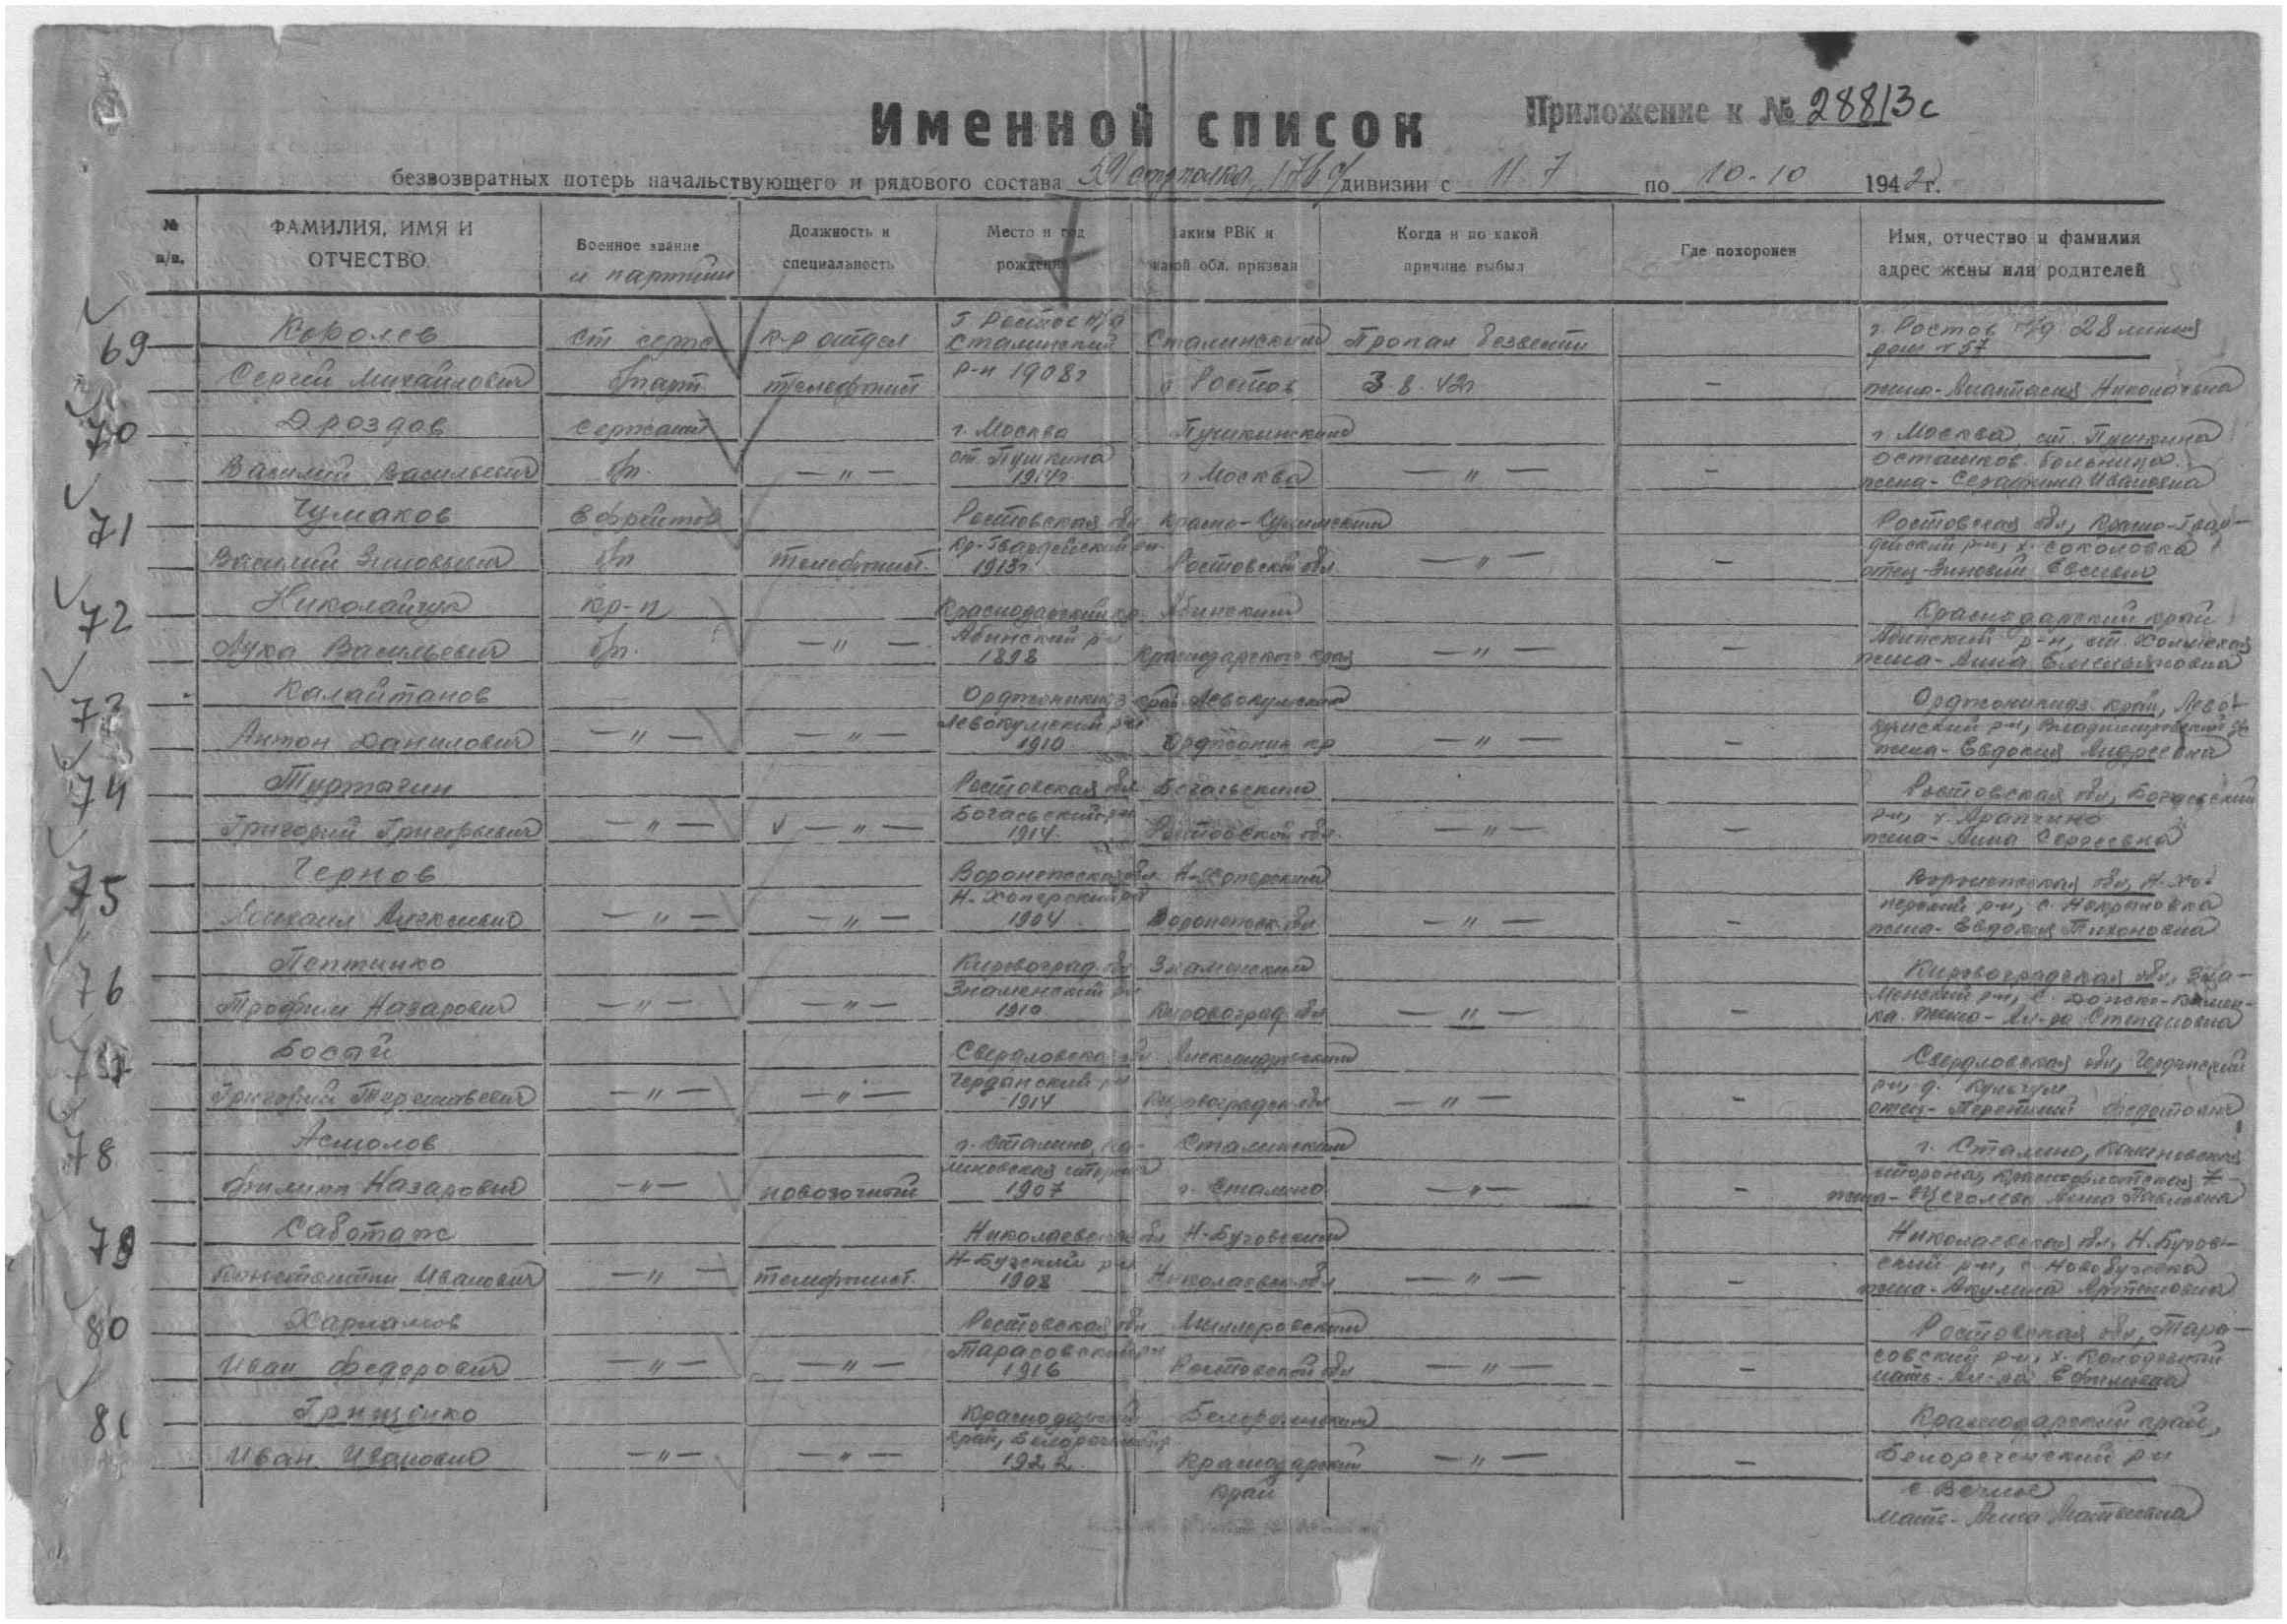 Приложение к № 28813с
Именной список
безвозвратных потерь начальствующего и рядового состава 591 стр полка, 176 с/дивизии с 11.7 по 10-10 1942 г.
№ п/п.
ФАМИЛИЯ, ИМЯ И ОТЧЕСТВО
Военное звание и партийн
Должность и специальность
Место и год рождения
Каким РВК и какой обл. призван
Когда и по какой причине выбыл
Где похоронен
Имя, отчество и фамилия адрес жены или родителей
69
Королев ст серж к-р отдел г. Ростов н/д Сталинский Сталинский Пропал безвести г. Ростов н/д 28 линия дом № 57
Сергей Михайлович б/парт телефонист р-н 1908г г Ростов 3.8.42г — жена-Анастасия Николаевна
70
Дроздов сержант г. Москва Пушкинский г Москва, ст. Пушкина
Василий Васильевич б/п. — " — ст. Пушкина г Москва — " — — осташков. больница.
жена- Серафима Ивановна
71
Чумаков Ефрейтор Ростовская обл Ростовская обл, Красно-Гвар-
Василий Зиновьевич б/п телефонист. Кр-Гвардейский р-н 1913г Ростовской обл — " — — дейский р-н, х. Соколовка
отец-Зиновий Евсеевич
72
Николайчук кр-ц Краснодарский кр. Абинский Краснодарский край
Лука Васильевич б/п. — " — Абинский р-н 1898 Краснодарского края — " — — Абинский р-н, ст. Холмская
жена-Анна Емельяновна
73
Калайтанов Орджоникидз. край Левокумский Орджоникидз. край, Лево-
Антон Данилович — " — — " — Левокумский р-н 1910 Орджоник кр — " — — кумский р-н,
жена-Евдокия Андреевна
74
Ростовская обл Багаевский Ростовская обл, Багаевский
Григорий Григорьевич — " — v — " — Багаевский р-н 1914. Ростовской обл. — " — — р-н, х.
жена-Анна Сергеевна
75
Чернов Воронежская обл. Н-Хоперский Воронежская обл, Н-Хо-
Михаил Алексеевич — " — — " — Н-Хоперский р-н 1904 Воронежск. обл — " — — перский р-н, с.
жена-Евдокия Тихоновна
76
Кировоград. обл Знаменский Кировоградская обл, Зна-
Трофим Назарович — " — — " — Знаменский р-н 1910 Кировоград. обл — " — — менский р-н, с. -Камен-
ка. жена- Ал-ра Степановна
77
Босый Свердловская обл Александрийский Свердловская обл, Чердынский
Григорий Терентьевич — " — — " — Чердынский р-н 1914 Кировоградск. обл — " — — р-н, д.
отец- Терентий Федотович
78
Асмолов г. Сталино, Ка- Сталинский г. Сталино, Калиновская
Филипп Назарович — " — повозочный линовская сторона 1907 г. Сталино — " — — сторона, Краснофлотская 7
жена-Щеголева Анна Павловна
79
Саботаж Николаевская обл Н-Буговский Николаевская обл, Н.Бугов-
Константин Иванович — " — телефонист. Н-Бугский р-н 1908 Николаевск. обл — " — — ский р-н, с.
жена-Акулина Артемовна
80
Харламов Ростовская обл Миллеровский Ростовская обл, Тара-
Иван Федорович — " — — " — Тарасовский р-н 1916 Ростовской обл — " — — совский р-н, х. Колодезный
мать-Ал-ра Ефимовна
81
Грищенко Краснодарский Белореченский Краснодарский край,
Иван Иванович — " — — " — край, Белореченский р 1922 Краснодарский край — " — — Белореченский р-н
с. Вечное
мать-Анна Матвеевна